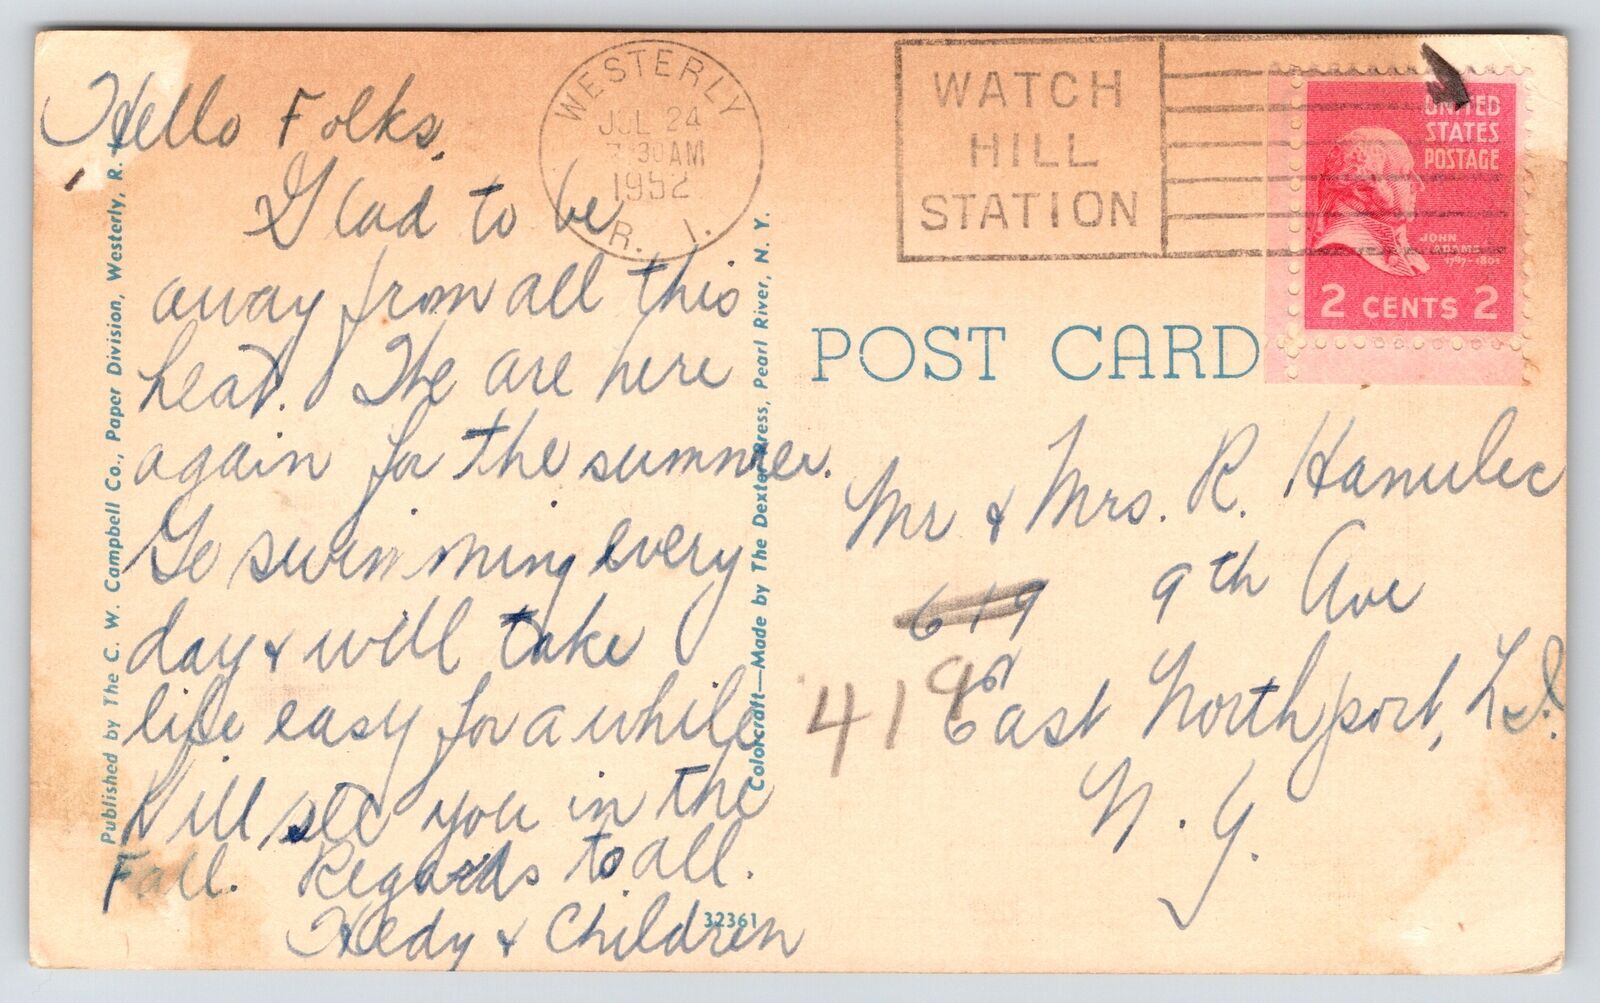 Hello Folks,
Glad to be
away from all this
heat. The are here
again for the summer.
Go swimming every
day & will take
life easy for a while
Will see you in the
Fall. Regards to all.
Hedy & Children
Published by The C. W. Campbell Co., Paper Division, Westerly, R. I.
Colorcraft—Made by The Dexter Press, Pearl River, N. Y.
32361
WESTERLY
JUL 24
7:30 AM
1952
R. I.
WATCH
HILL
STATION
UNITED
STATES
POSTAGE
JOHN
ADAMS
1797-1801
2 CENTS 2
POST CARD
Mr & Mrs. R. Hanulec
619 9th Ave
419
East Northport, L.I.
N. Y.